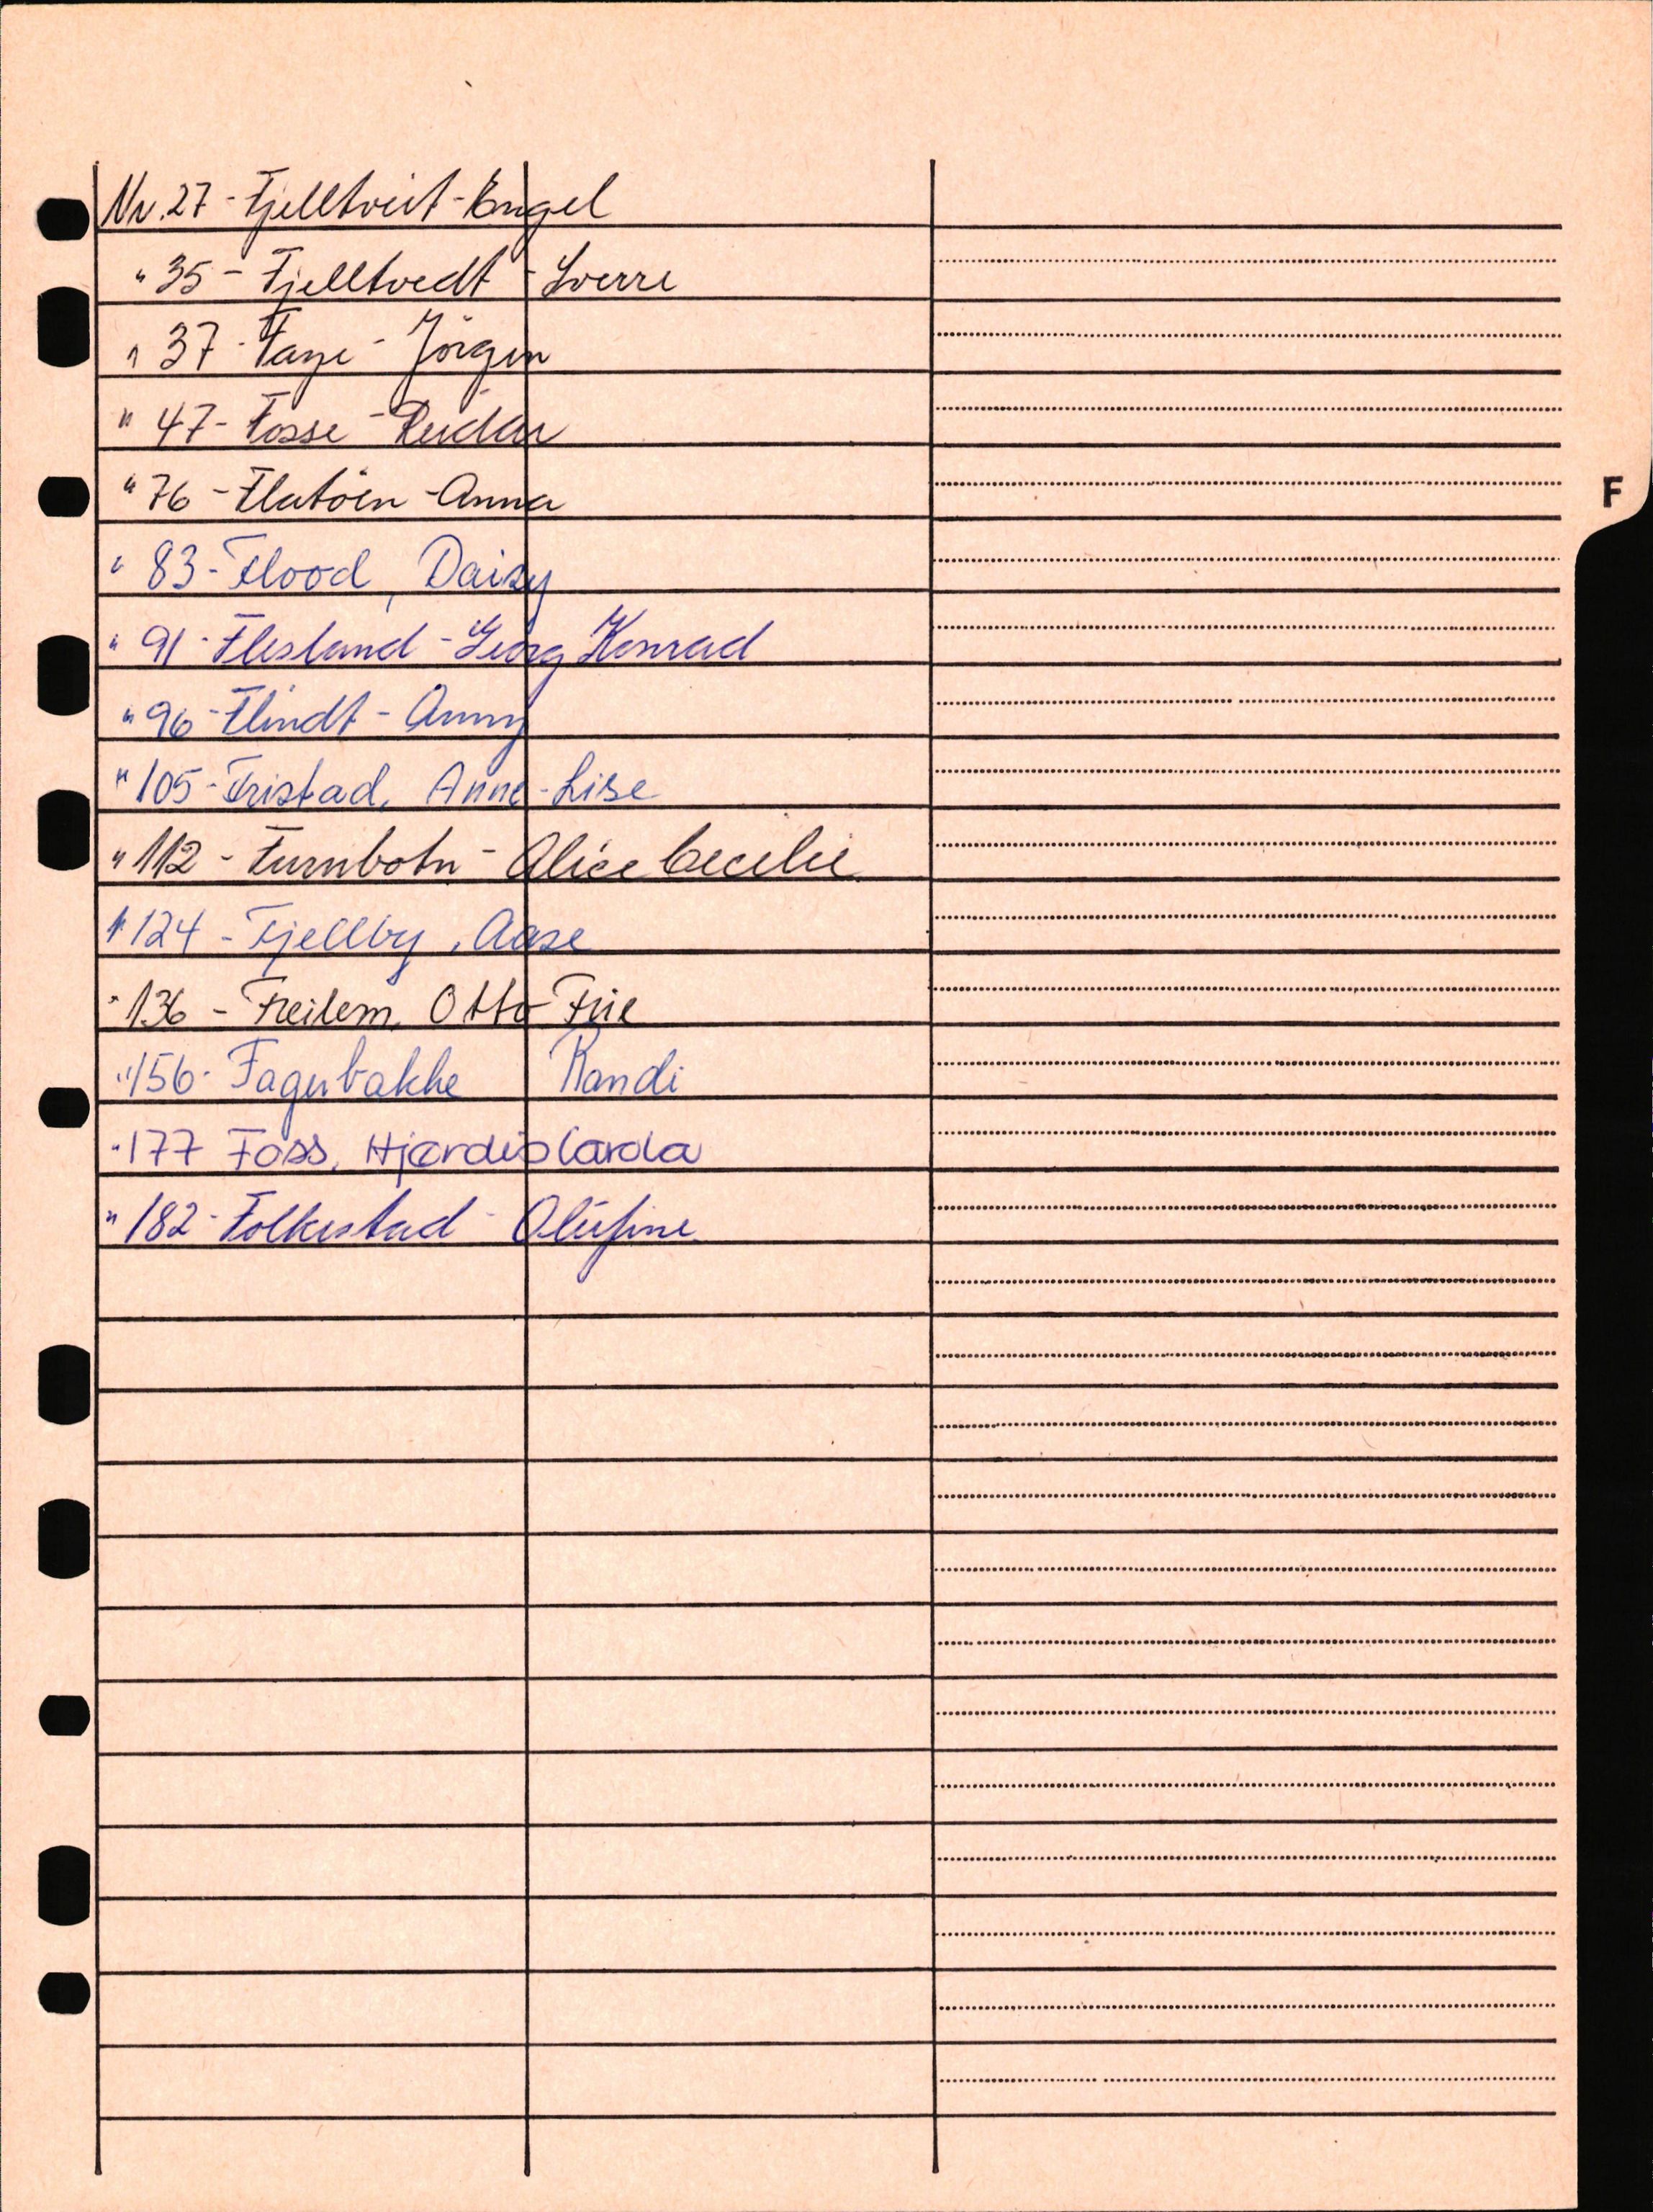 Nr. 27 - Fjelltveit - Engel
" 35 - Fjelltvedt - Sverre
" 37 - Faye - Jörgen
" 47 - Fosse - Reidar
" 76 - Flatöen - Anna
F
" 83 - Flood, Daisy
" 91 - Flesland - Georg Konrad
" 96 - Flindt - Anny
" 105 - Fristad, Anne-Lise
" 112 - Furnbotn - Alice Cecilie
" 124 - Fjellby, Aase
" 136 - Freilem, Otto Frie
" 156 - Fagerbakke Randi
" 177 Foss, Hjørdis Carola
" 182 - Folkestad - Olufine